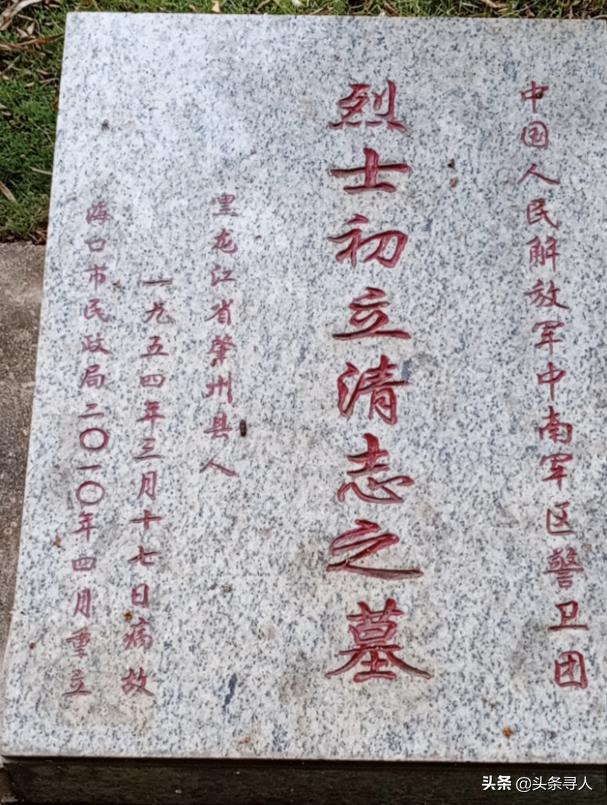 中国人民解放军中南军区警卫团
烈士初立清志之墓
黑龙江省肇州县人
一九五四年三月十七日病故
海口市民政局二〇一〇年四月重立
头条 @头条寻人